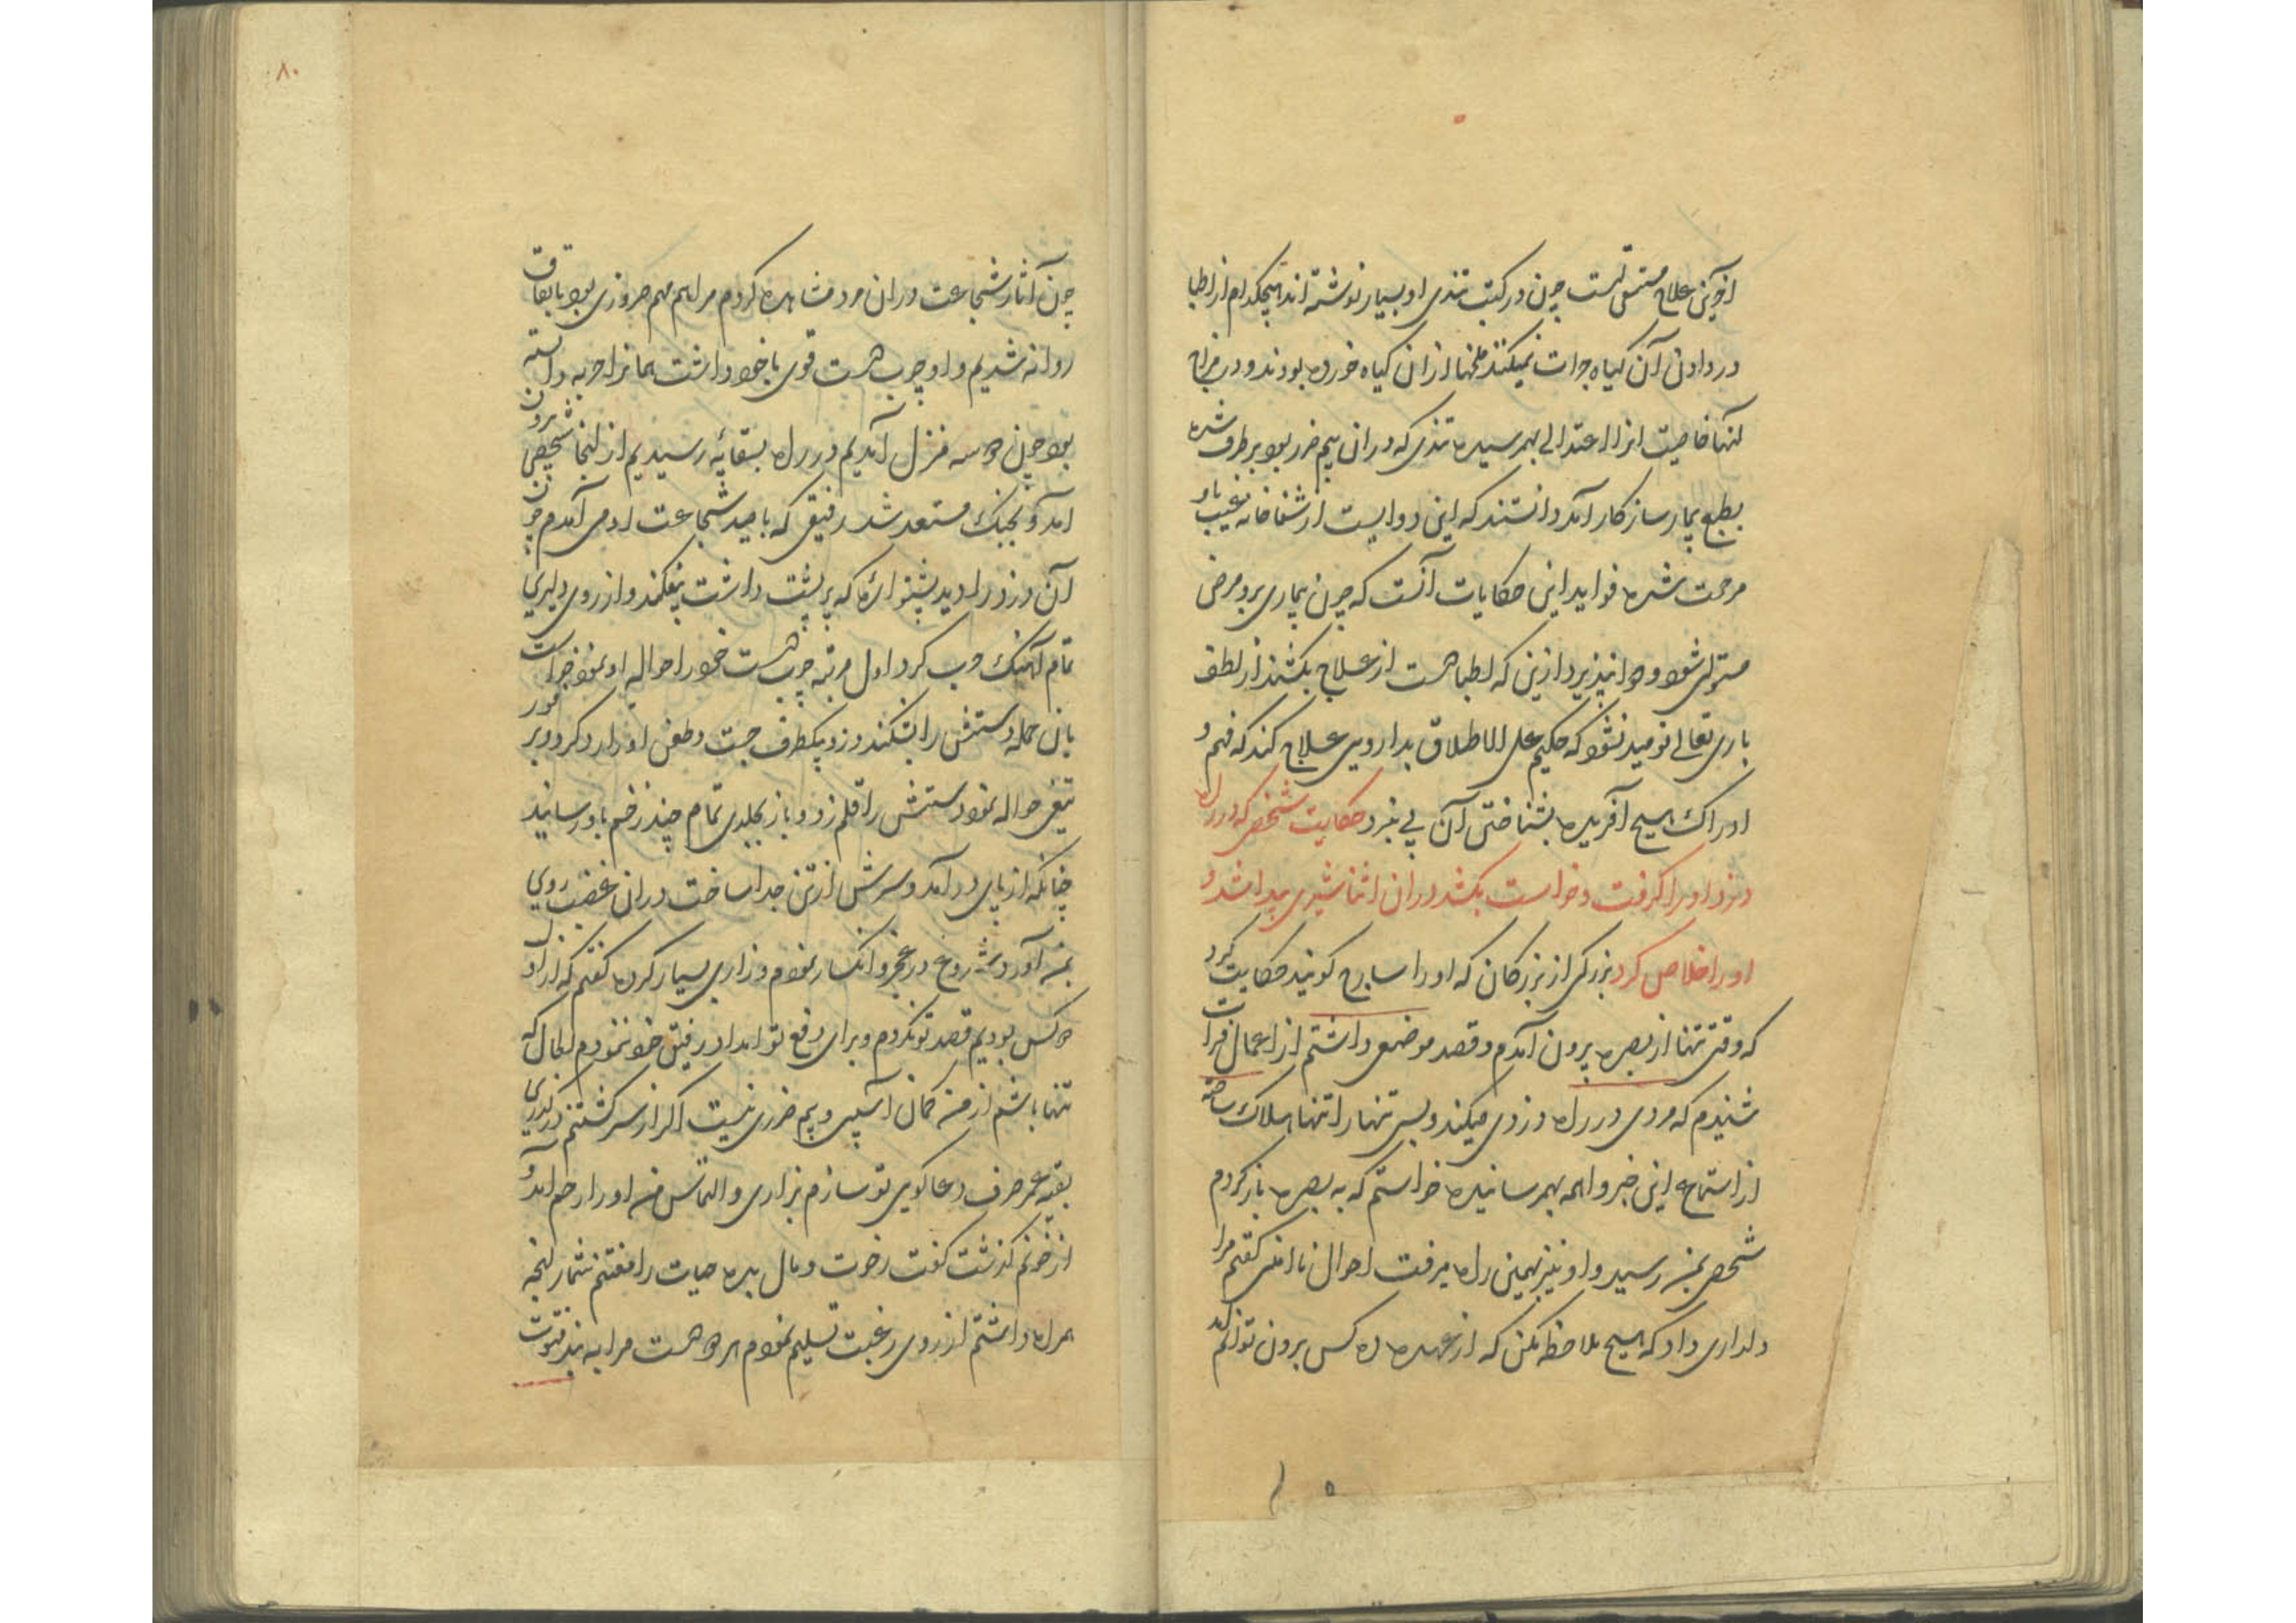 آخرین علاج مستسقی است چون در کتب تندی او بسیار نوشته اند هیچکدام از اطبا
در دادن آن کیاه جرات نمیکنند ملخها از ان کیاه خورده بودند و در مزاج
انها خاصیت انرا اعتدالی بهمرسیده تندی که در ان بیم ضرر بود برطرف شده
بطبع بیمار سازکار آمد دانستند که این دوایست از شفاخانه غیب باو
مرحمت شده فواید این حکایات آنست که چون بیماری برو مرضی
مستولی شود و دوا نپذیرد ازین که اطبا دست از علاج بکشند از لطف
باری تعالی نومید نشود که حکیم علی الاطلاق بدارویی علاج کند که فهم و
ادراک هیچ آفریده بشناختن آن پی نبرد حکایت شخصی که در راه
دزد او را کرفت و خواست بکشد در ان اثنا شیری پیدا شد و
او را خلاص کرد بزرکی از بزرکان که او را سارح کویند حکایت کرد
که وقتی تنها از بصره برون آمدم و قصد موضعی داشتم از اعمال فرات
شنیدم که مردی در راه دزدی میکند و بس تنها را تنها هلاک ساخته
از استماع این خبر واهمه بهمرسانیده خواستم که به بصره باز کردم
شخصی بمن رسید و او نیز بهمین راه میرفت احوال ناامنی کفتم مرا
دلداری داد که هیچ ملاحظه مکن که از عهده ده کس برون توانم آمد
چون آثار شجاعت در ان مرد مشاهده کردم مرا هم مهم ضروری بود باتفاق
روانه شدیم و او چوب دست قوی با خود داشت همانرا حربه دانسته
بود چون دو سه منزل آمدیم در راه بسقایه رسیدیم از انجا شخصی برون
آمد و بجنک مستعد شد رفیقی که بامید شجاعت او می آمدم چون
آن دزد را دید پشتواره که بر پشت داشت بیفکند و از روی دلیری
تمام آهنک حرب کرد اول مرتبه چوب دست خود را حواله او نمود خواست
بان حمله دستش را بشکند دزد یکطرف جست و طعن او را رد کرد و بر فور
تیغی حواله نمود دستش را قلم زد و باز بجلدی تمام چند زخم باو رسانید
چنانکه از پای در آمد و سرش از تن جدا ساخت در ان غضب روی
بمن آورد شروع در عجز و انکسار نمودم و زاری بسیار کرده کفتم که از اول
دو کس بودیم قصد تو نکردم و برای دفع تو امداد رفیق خود ننمودم الحال که
تنها باشم از من کمان آسیبی و بیم ضرری نیست اکر از سر کشتنم درکذری
بقیه عمر صرف دعاکویی تو سازم بزاری و التماس من او را رحم آمد و
از خونم کذشت کفت رخوت و مال بده حیات را مغتنم شمار انچه
همراه داشتم از روی رغبت تسلیم نمودم هر دو دست مرا به بند فتوت